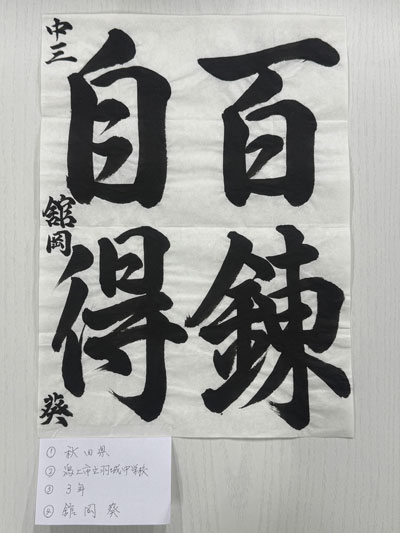 百錬
自得
中三 舘岡 葵
① 秋田県
② 潟上市立羽城中学校
③ 3年
④ 舘岡葵